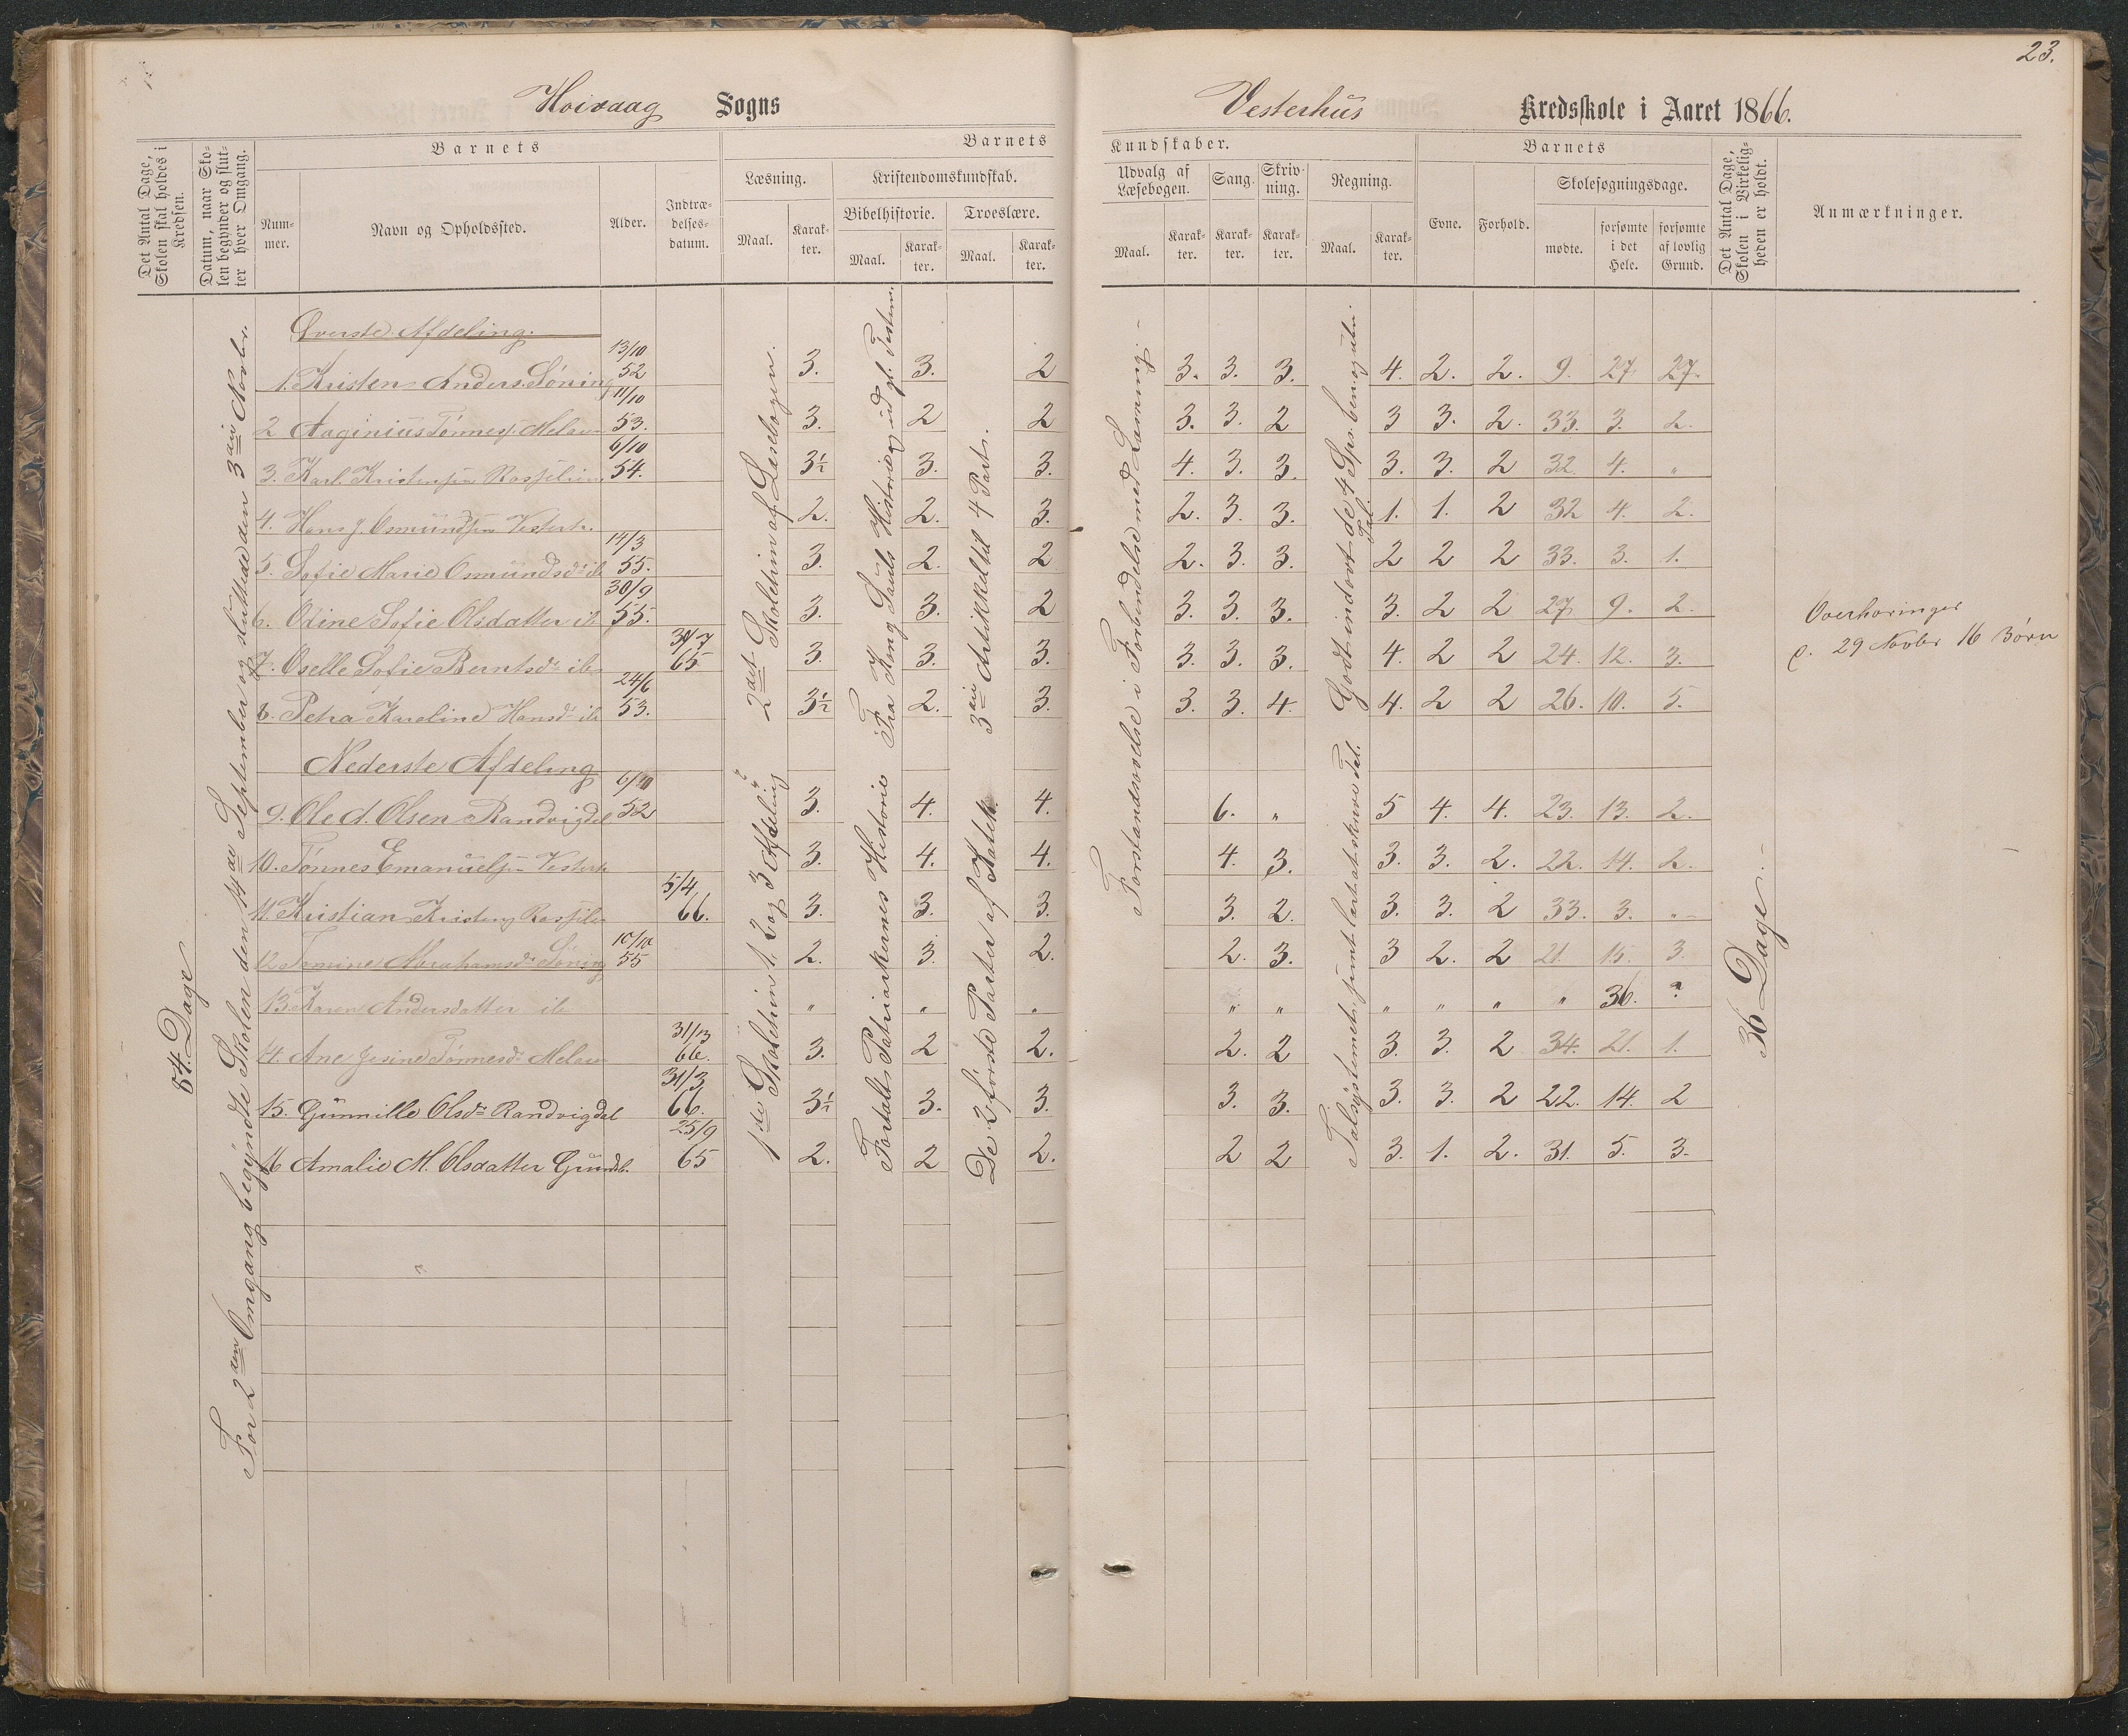 23.
Hoivaag Sogns
Vesterhus Kredsskole i Aaret 1866.
Det Antal Dage, Skolen skal holdes i Kredsen.
Datum, naar Skolen begynder og slutter hver Omgang.
Barnets
Nummer.
Navn og Opholdssted.
Alder.
Indtrædelsesdatum.
Barnets
Læsning.
Maal.
Karakter.
Kristendomskundskab.
Bibelhistorie.
Maal.
Karakter.
Troeslære.
Maal.
Karakter.
Kundskaber.
Udvalg af Læsebogen.
Maal.
Karakter.
Sang.
Karakter.
Skrivning.
Karakter.
Regning.
Maal.
Karakter.
Barnets
Evne.
Forhold.
Skolesøgningsdage.
mødte.
forsømte i det Hele.
forsømte af lovlig Grund.
Det Antal Dage, Skolen i Virkeligheden er holdt.
Anmærkninger.
84. Dage
For 2den Omgang begyndte Skolen den 14de September og sluttede den 3die Novbr.
2det Skoletrin af Læsebogen.
Fra Kong Sauls Historie og ud gl. Testam.
3die Artikkel til 4 Part.
Forstandsøvelse i Forbindelse med Læsning.
Godt indøvt de 4 Spec. ben. og uben. Tal.
Øverste Afdeling.
1. Kristen Anders. Søning 13/10 52 3. 3. 2 3. 3. 3. 4. 2. 2. 9. 27 27.
2 Aaginius Tønness. Melaas 11/10 53. 3. 2 2 3. 3. 2 3 3. 2. 33. 3. 2.
3. Karl Kristensen Rosselien 6/10 54. 3½ 3. 3. 4. 3. 3. 3. 3. 2 32 4. "
4. Hans J. Osmundsen Vesterh. 2. 2. 3. 2. 3. 3. 1. 1. 2 32 4. 2.
5. Sofie Marie Osmundsdr ib 14/3 55. 3. 2. 2 2. 3. 3. 2 2 2 33. 3. 1.
6. Odine Sofie Olsdatter ib 30/9 55. 3. 3. 2 3. 3. 3. 3. 2 2 27 9. 2.
7. Oselle Sofie Berntsdr ib 31/7 65 3. 3. 3. 3. 3. 3. 4. 2 2 24. 12. 3.
8. Petra Karoline Hansdr ib 24/6 53. 3½ 2. 3. 3. 3. 4. 4. 2 2 26. 10. 5.
Overhøringer
d. 29 Novbr 16 Børn
Nederste Afdeling
1ste Skoletrin 1, 2 og 3 Afdeling
Fortalt Patriarkernes Historie
De 2 første Parter af Katek.
Talsystemet samt lært at skrive Tal.
36 Dage.
9. Ole A. Olsen Randvigdal 52 3. 4. 4. 6. " 5 4. 4. 23. 13. 2.
10. Tønnes Emanuelsen Vesterh 3. 4. 4. 4. 3. 3. 3. 2. 22. 14. 2.
11. Kristian Kristens. Rosselien 5/4 66. 3. 3. 3. 3. 2. 3. 3. 2 33. 3. "
12 Tomine Abrahamsdr Søning 10/10 55 2. 3. 2. 2. 3. 3 2. 2 21. 15. 3.
13 Karen Andersdatter ib " " " " " " " " " 36. ?
14. Ane Jesine Tønnesdr Melaas 66. 3. 2 2. 2. 2 3. 3. 2 34. 21. 1.
15. Gunnille Olsdr Randvigdal 31/3 66. 3½ 3. 3. 3. 3. 3. 3. 2 22. 14. 2
16 Amalie M. Olsdatter Grunds. 25/9 65 2. 2 2. 2 2 3. 1. 2. 31. 5. 3.